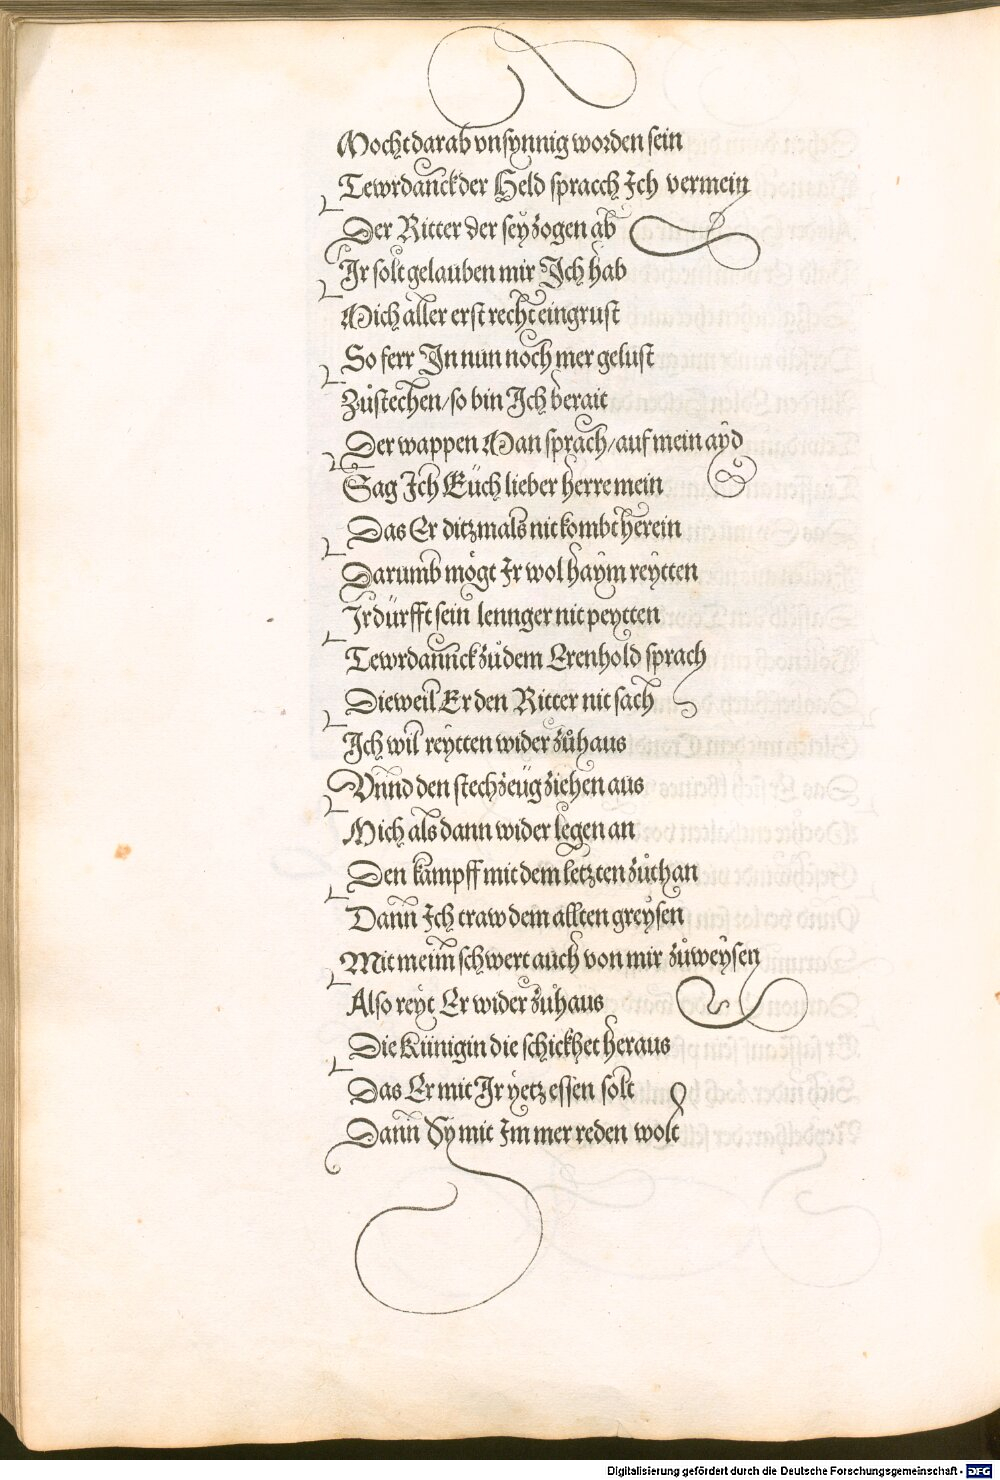 Mocht darab vnsynnig worden sein
Tewrdannck der Held spracch Ich vermein
Der Ritter der sey zogen ab
Ir solt gelauben mir Ich hab
Mich aller erst recht eingrust
So ferr In nun noch mer gelust
Zůstechen/so bin Ich berait
Der wappen Man sprach/auf mein ayd
Sag Ich Euch lieber herre mein
Das Er ditzmals nit kombt herein
Darumb mögt Ir wol haym reytten
Ir dürfft sein lennger nit peytten
Tewrdannck zů dem Erenhold sprach
Dieweil Er den Ritter nit sach
Ich wil reytten wider zů haus
Vnnd den stechzeüg ziehen aus
Mich als dann wider legen an
Den kampff mit dem letzten zůthan
Dann Ich traw dem allten greysen
Mit meim schwert auch von mir zůweysen
Also reyt Er wider zů haus
Die Künigin die schickhet heraus
Das Er mit Ir yetz essen solt
Dann Sy mit Im mer reden wolt
Digitalisierung gefördert durch die Deutsche Forschungsgemeinschaft - DFG